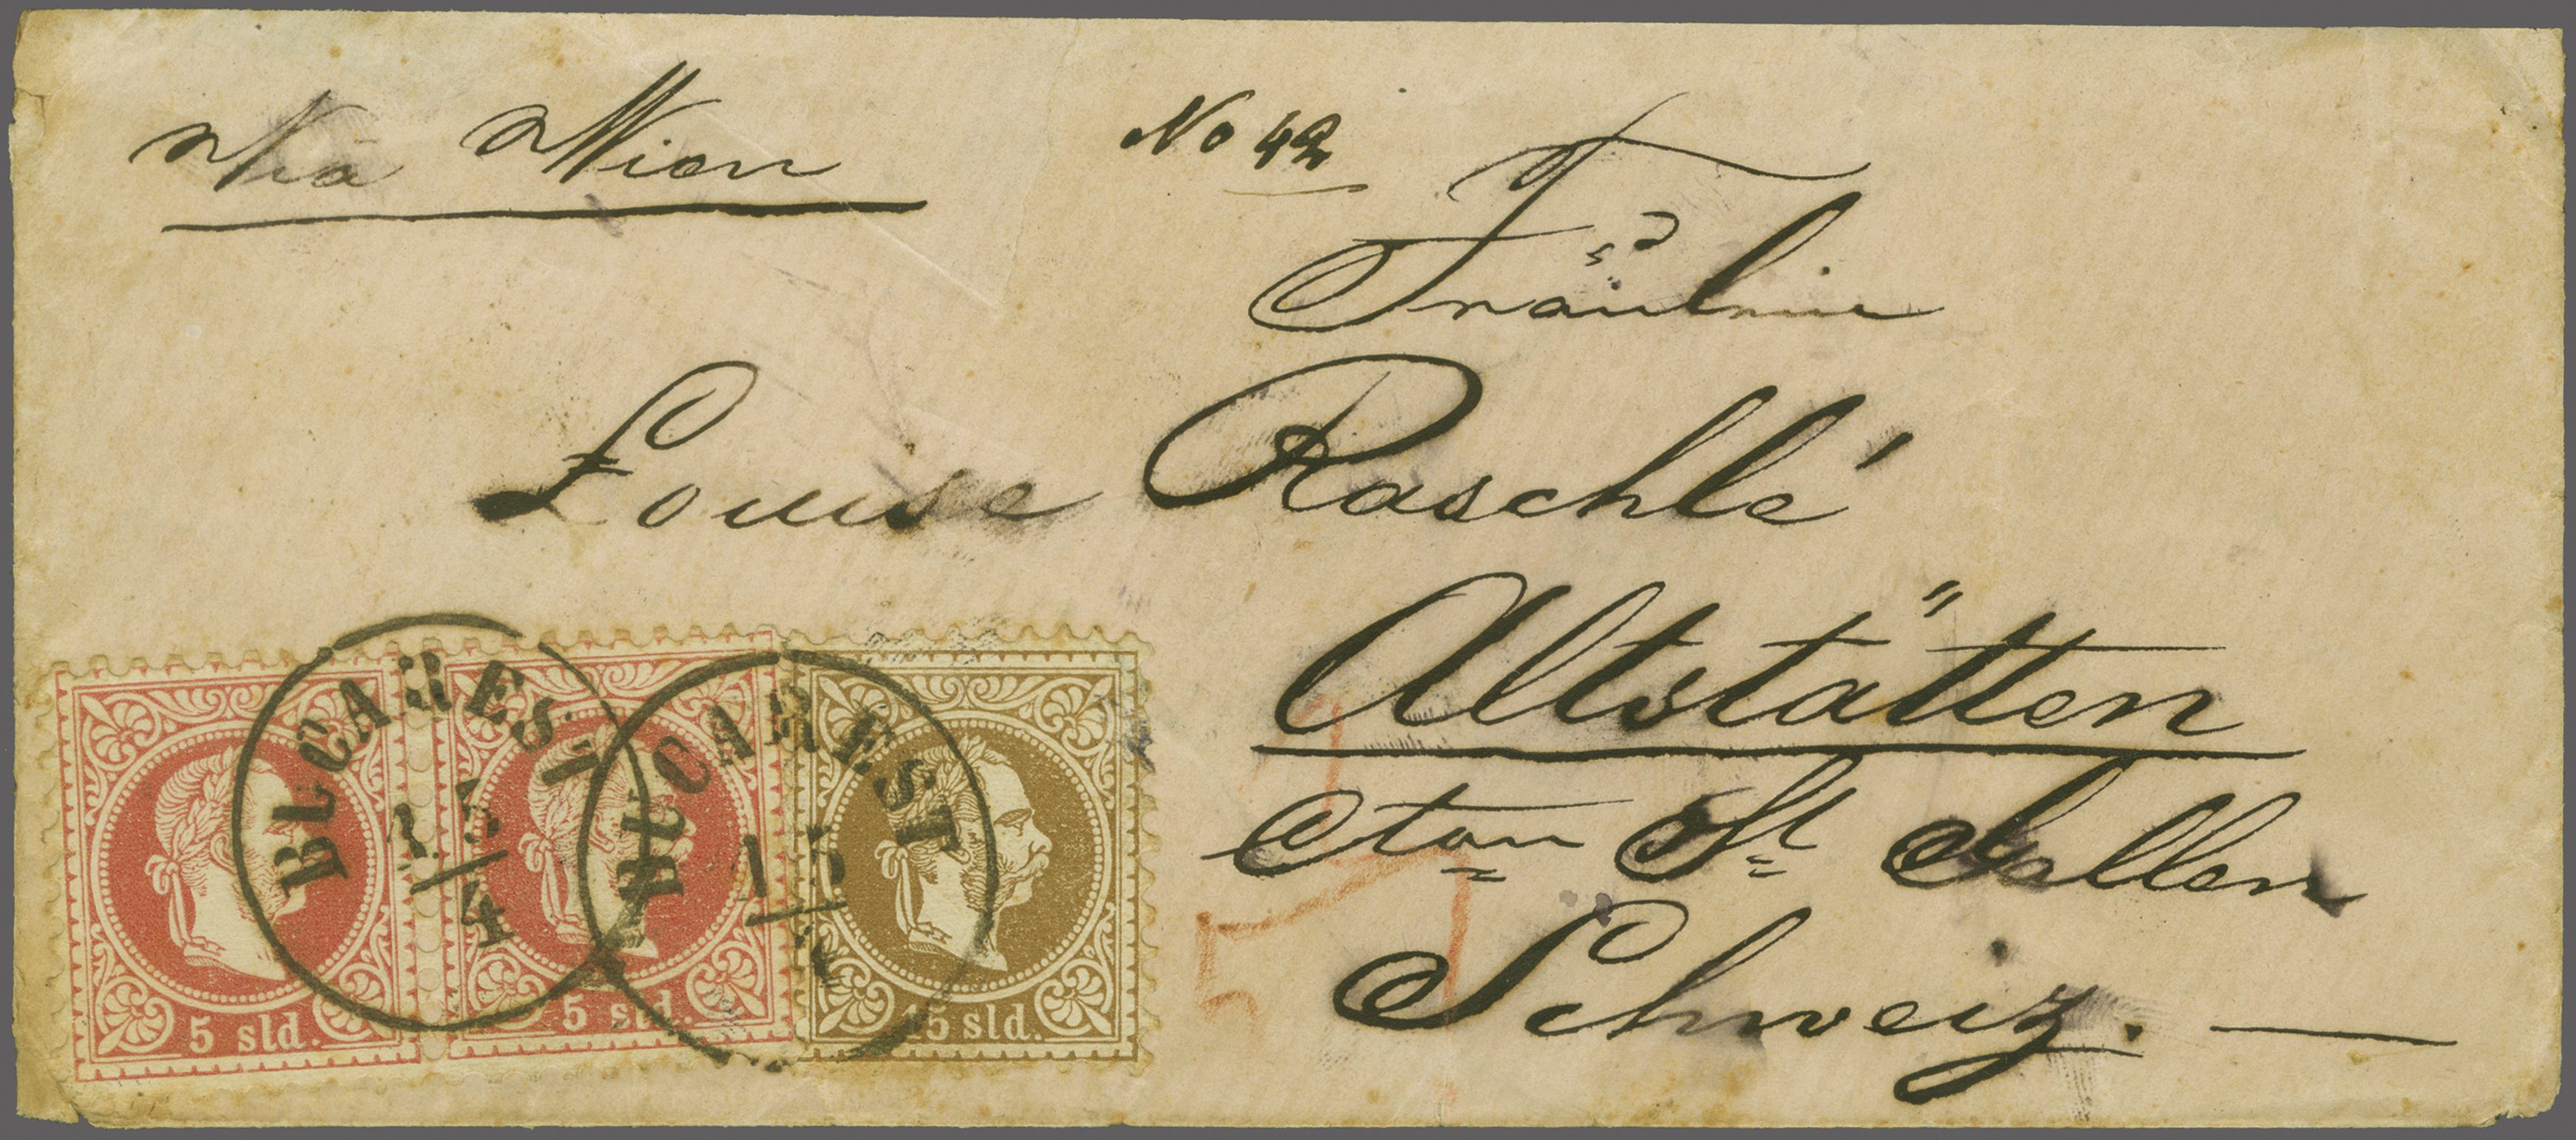 Via Wien
No 42
Fräulein
Louise Raschlé
Altstätten
Cton St Gallen
Schweiz.
BUCAREST
15/4
BUCAREST
15/4
5 sld.
5 sld.
15 sld.